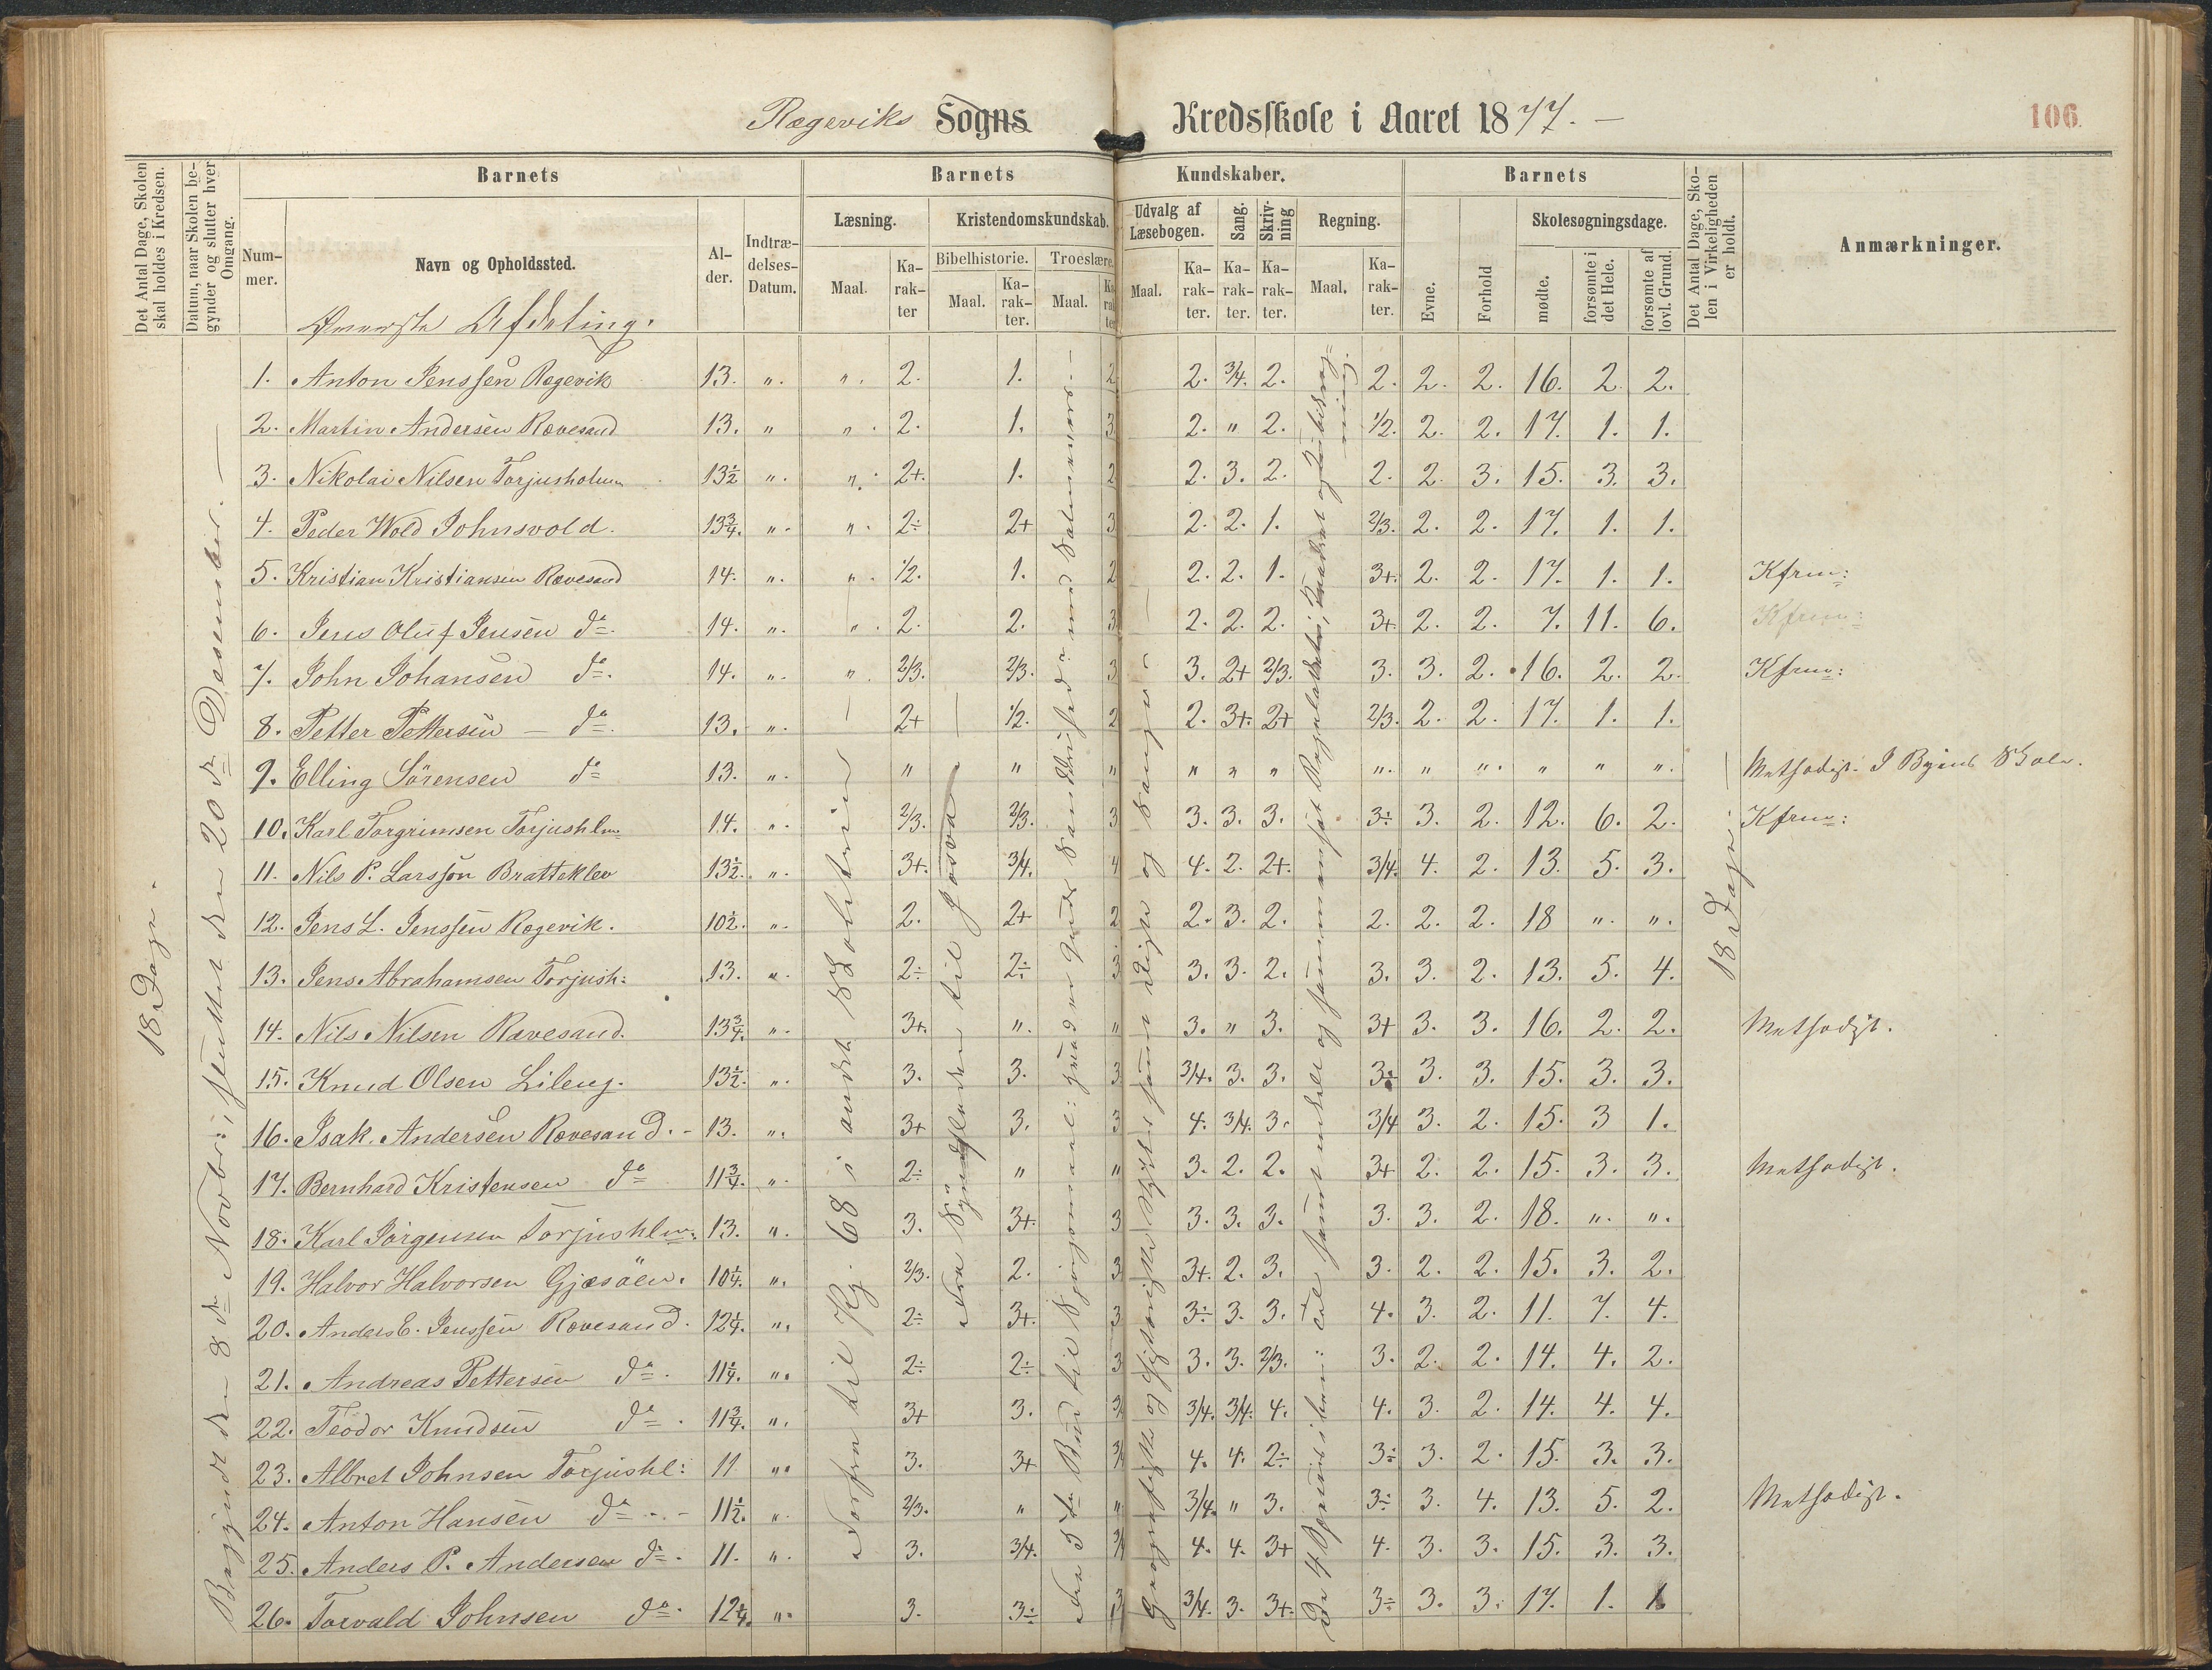 Rægeviks Sogns Kredsskole i Aaret 1877. –
106.
Det Antal Dage, Skolen skal holdes i Kredsen.
Datum, naar Skolen begynder og slutter hver Omgang.
Barnets
Barnets Kundskaber.
Barnets
Det Antal Dage, Skolen i Virkeligheden er holdt.
Anmærkninger.
Nummer.
Navn og Opholdssted.
Alder.
Indtrædelses-Datum.
Læsning.
Kristendomskundskab.
Udvalg af Læsebogen.
Sang.
Skrivning
Regning.
Evne.
Forhold
Skolesøgningsdage.
Maal.
Karakter
Bibelhistorie.
Troeslære.
Maal.
Karakter.
Maal.
Karakter
Maal.
Karakter.
Karakter.
Karakter.
Maal.
Karakter.
mødte.
forsømte i det Hele.
forsømte af lovl. Grund.
Øverste Afdeling.
18 Dage.
Begyndt den 8de Novbr:, sluttet den 20de Desember. –
18 Dage. –
1. Anton Jenssen Rægevik 13. ". ". 2. 1. 2 2. 3/4. 2. 2. 2. 2. 16. 2. 2.
2. Martin Andersen Rævesand 13. " ". 2. 1. 3 2. " 2. 1/2. 2. 2. 17. 1. 1.
3. Nikolai Nilsen Torjusholmn 13½ ". ". 2+. 1. 2 2. 3. 2. 2. 2. 3. 15. 3. 3.
4. Peder Wold Johnsvold. 13¾. ". ". 2÷ 2+ 3 2. 2. 1. 2/3. 2. 2. 17. 1. 1.
5. Kristian Kristiansen Rævesand 14. ". ". 1/2. 1. 2 2. 2. 1. 3+. 2. 2. 17. 1. 1. Kfrm:
6. Jens Oluf Jensen do. 14. ". ". 2. 2. 3 2. 2. 2. 3+. 2. 2. 7. 11. 6. Kfrm:
7. John Johansen do. 14. ". ". 2/3. 2/3. 3 3. 2+ 2/3. 3. 3. 2. 16. 2. 2. Kfrm:
8. Petter Pettersen – do. 13. ". 2+ 1/2. 2 2. 3+. 2+ 2/3. 2. 2. 17. 1. 1.
9. Elling Sörensen do 13. ". " " " " " " ". " ". " " ". Methodist. I Byens Skole.
10. Karl Torgrimsen Torjushlm 14. ". 2/3. 2/3. 3 3. 3. 3. 3÷ 3. 2. 12. 6. 2. Kfrm:
11. Nils P. Larssen Bratteklev 13½. ". 3+. 3/4. 4 4. 2. 2+. 3/4. 4. 2. 13. 5. 3.
12. Jens L. Jenssen Rægevik. 10½. ". 2. 2+ 2 2. 3. 2. 2. 2. 2. 18 ". ".
13. Jens Abrahamsen Torjush: 13. ". 2÷ 2÷ 3 3. 3. 2. 3. 3. 2. 13. 5. 4.
14. Nils Nilsen Rævesand. 13¾. ". 3+. ". " 3. " 3. 3+ 3. 3. 16. 2. 2. Methodist.
15. Knud Olsen Lileng. 13½. ". 3. 3. 3 3/4. 3. 3. 3÷ 3. 3. 15. 3. 3.
16. Isak. Andersen Rævesand. – 13. ". 3+ 3. 3 4. 3/4. 3. 3/4 3. 2. 15. 3 1.
17. Bernhard Kristensen do 11¾. ". 2÷ " " 3. 2. 2. 3+ 2. 2. 15. 3. 3. Methodist.
18. Karl Jörgensen Torjushlm: 13. ". 3. 3+. 3 3. 3. 3. 3. 3. 2. 18. ". ".
19. Halvor Halvorsen Gjæsöen. 10¼. ". 2/3. 2. 3 3+. 2. 3. 3. 2. 2. 15. 3. 2.
20. Anders E. Jenssen Rævesand. 12¼. ". 2÷ 3+. 3 3÷ 3. 3. 4. 3. 2. 11. 7. 4.
21. Andreas Pettersen do. 11¼. ". 2÷ 2÷ 3 3. 3. 2/3. 3. 2. 2. 14. 4. 2.
22. Teodor Knudsen do. 11¾. ". 3+ 3. 3/4. 3/4. 4. 4. 3. 2. 14. 4. 4.
23. Albret Johnsen Torjushl: 11 ". 3. 3+ 4. 4. 2÷ 3÷ 3. 2. 15. 3. 3.
24. Anton Hansen do – 11½. ". 2/3. " " 3/4. " 3. 3÷ 3. 4. 13. 5. 2. Methodist.
25. Anders P. Andersen do. 11. ". 3. 3/4. 4. 4. 3+ 4. 3. 3. 15. 3. 3.
26. Torvald Johnsen do. 12¼. ". 3. 3÷ 3 3/4. 3. 3+. 3÷ 3. 3. 17. 1. 1.
Forfra til Pg. 68 i andet Skoletrin –
Fra Syndfloden til Josva
Fra 5te Bud til Spörgsmaal: hvad er Guds Sandhed
Geografiske og historiske Stykker samt Digte og Sange –